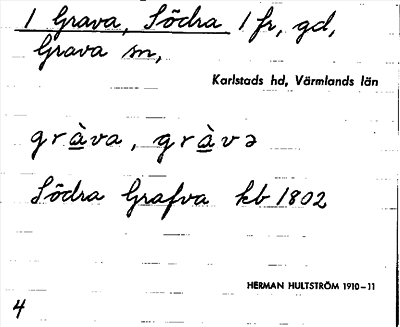 1 Grava, Södra 1 fr, gd,
Grava sn,
Karlstads hd, Värmlands län
gràva, gràvə
Södra Grafva kb 1802
HERMAN HULTSTRÖM 1910–11
4